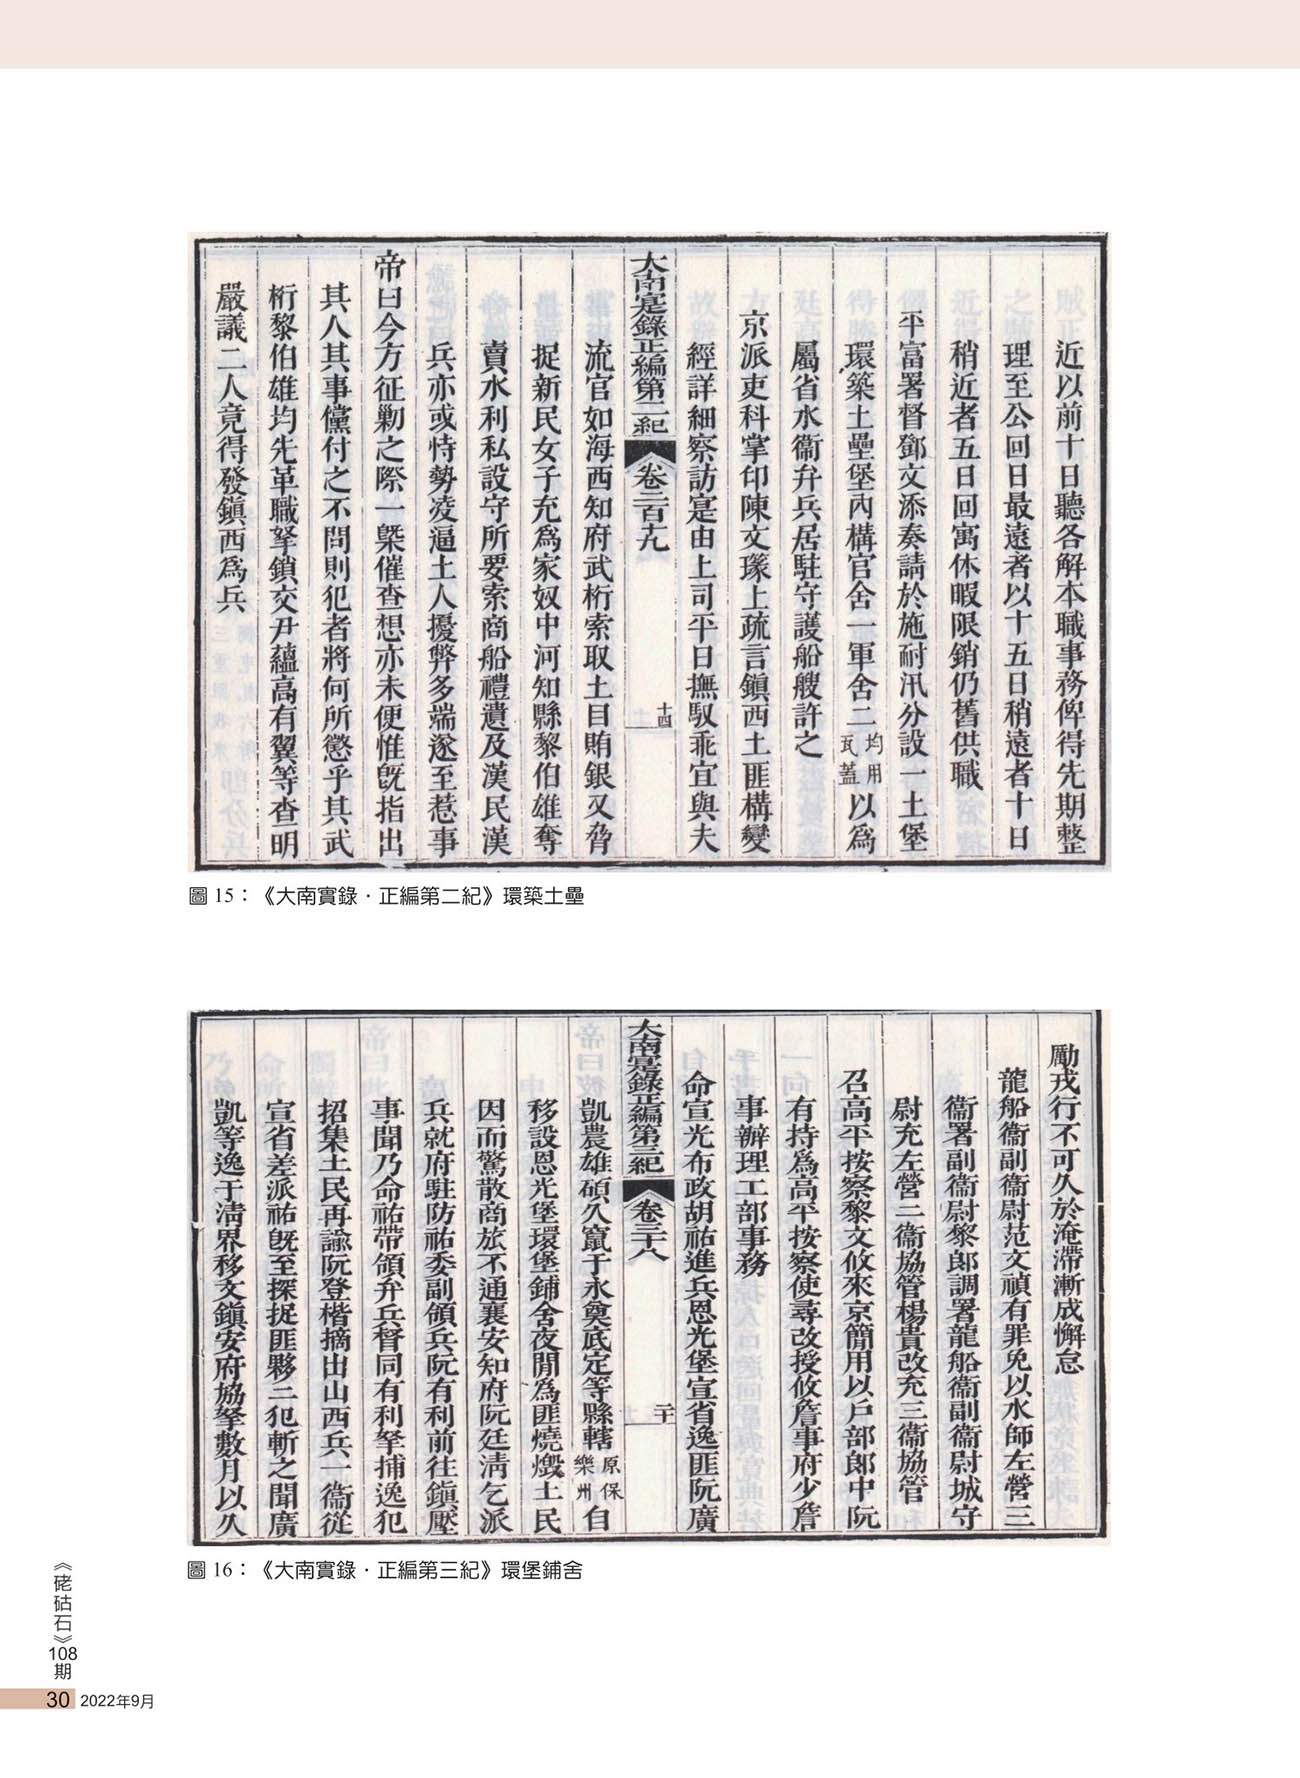 近以前十日聽各解本職事務俾得先期整
理至公回日最遠者以十五日稍遠者十日
稍近者五日回寓休暇限銷仍舊供職
平富署督鄧文添奏請於施耐汛分設一土堡
環築土壘堡內構官舍一軍舍二均用瓦蓋以為
屬省水衞弁兵居駐守護船艘許之
京派吏科掌印陳文㻮上疏言鎮西土匪構變
經詳細察訪寔由上司平日撫馭乖宜與夫
大南寔錄正編第二紀 卷二百九 十四
流官如海西知府武桁索取土目賄銀又脅
捉新民女子充為家奴中河知縣黎伯雄奪
賣水利私設守所要索商船禮遺及漢民漢
兵亦或恃勢凌逼土人擾弊多端遂至惹事
帝曰今方征勦之際一槩催查想亦未便惟旣指出
其人其事儻付之不問則犯者將何所懲乎其武
桁黎伯雄均先革職拏鎖交尹蘊高有翼等查明
嚴議二人竟得發鎮西為兵
圖 15：《大南實錄．正編第二紀》環築土壘
勵戎行不可久於淹滯漸成懈怠
龍船衞副衞尉范文禎有罪免以水師左營三
衞署副衞尉黎郎調署龍船衞副衞尉城守
尉充左營二衞協管楊貴改充三衞協管
召高平按察黎文攸來京簡用以戶部郎中阮
有持為高平按察使尋改授攸詹事府少詹
事辦理工部事務
命宣光布政胡祐進兵恩光堡宣省逸匪阮廣
大南寔錄正編第三紀 卷三十八 二十
凱農雄碩久竄于永奠底定等縣轄原保樂州自
移設恩光堡環堡鋪舍夜閒為匪燒燬土民
因而驚散商旅不通襄安知府阮廷淸乞派
兵就府駐防祐委副領兵阮有利前往鎮壓
事聞乃命祐帶領弁兵督同有利拏捕逸犯
招集土民再諭阮登楷摘出山西兵一衞從
宣省差派祐旣至探捉匪夥二犯斬之聞廣
凱等逸于淸界移文鎮安府協拏數月以久
圖 16：《大南實錄．正編第三紀》環堡鋪舍
《硓𥑮石》108期
30 2022年9月